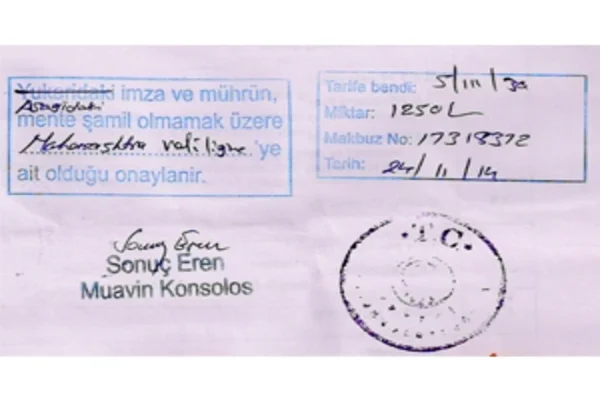 Yukarıdaki imza ve mührün,
Aşağıdaki
mente şamil olmamak üzere
Maharashtra valiligine 'ye
ait olduğu onaylanir.
Tarife bendi: 5/III/3a
Miktar: 1250L
Makbuz No: 17318372
Tarih: 24/11/14
Sonuç Eren
Sonuç Eren
Muavin Konsolos
T.C.